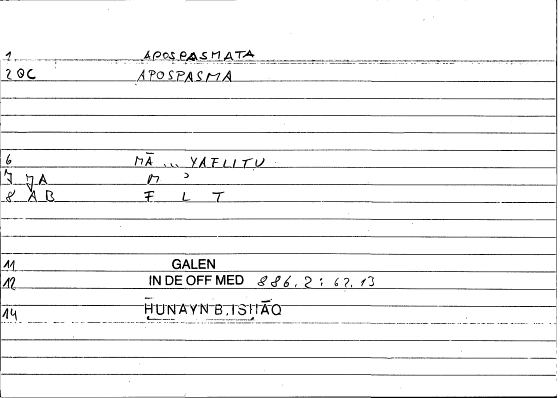 1. APOSPASMATA
2 QC APOSPASMA
6 MĀ ... YAFLITU
7 JA M ʾ
8 AB F L T
11 GALEN
12 IN DE OFF MED 886.2 : 62.13
14 ḤUNAYN B. ISḤĀQ